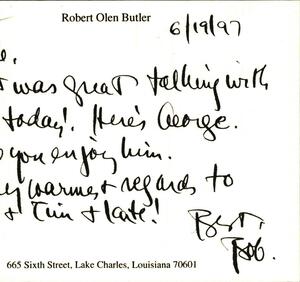 Robert Olen Butler
6/19/97
e.
t was great talking with
today! Here's George.
you enjoy him.
warmest regards to
& Tim & Kate!
Best,
Bob.
665 Sixth Street, Lake Charles, Louisiana 70601